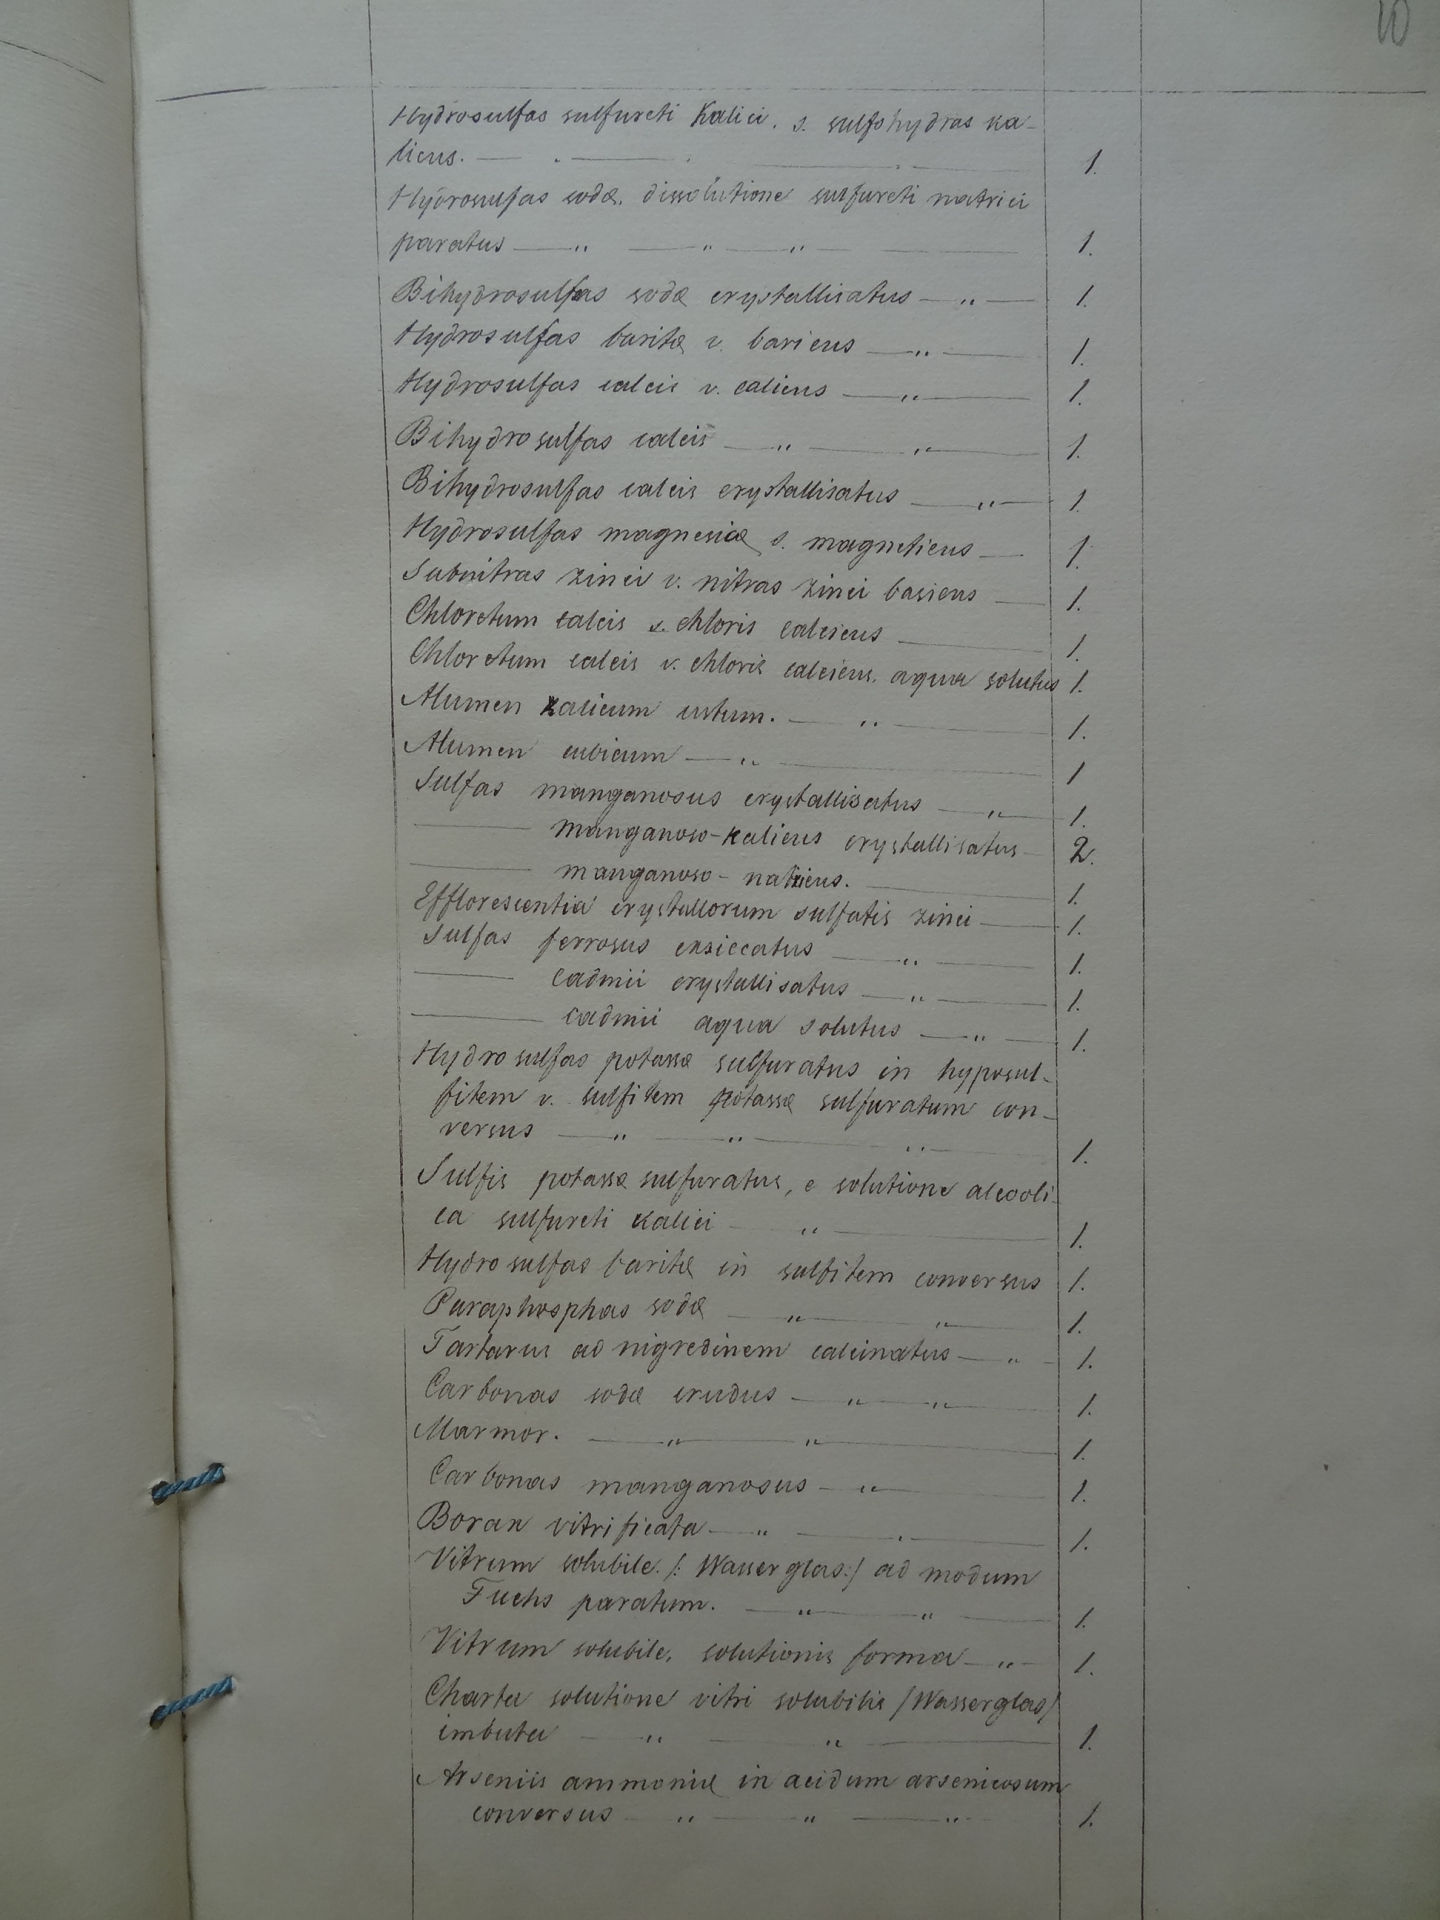 10
Hydrosulfas sulfureti Kalici. s. sulfohydras ka-
licus. — 1.
Hydrosulfas sodæ. dissolutione sulfureti natrici
paratus — „ — „ — „ — 1.
Bihydrosulfas sodæ crystallisatus — „ — 1.
Hydrosulfas baritæ v. baricus — „ — 1.
Hydrosulfas calcis v. calicus — „ — 1.
Bihydrosulfas calcis — „ — „ — 1.
Bihydrosulfas calcis crystallisatus — „ — 1.
Hydrosulfas magnesiæ s. magneticus — 1.
Subnitras zinci v. nitras zinci basicus — 1.
Chloretum calcis s. chloris calcicus — 1.
Chloretum calcis v. chloris calcicus. aqua solutus 1.
Alumen kalicum ustum. — „ — 1.
Alumen cubicum — „ — 1
Sulfas manganosus crystallisatus — „ — 1.
— manganoso-kalicus crystallisatus — 2.
— manganoso-natricus. — 1.
Efflorescentia crystallorum sulfatis zinci — 1.
Sulfas ferrosus exsiccatus — „ — 1.
— cadmii crystallisatus — „ — 1.
— cadmii aqua solutus — „ — 1.
Hydrosulfas potassæ sulfuratus in hyposul-
fitem v. sulfitem potassæ sulfuratum con-
versus — „ — „ — „ — 1.
Sulfis potassæ sulfuratus, e solutione alcooli-
ca sulfureti kalici — „ — 1.
Hydrosulfas baritæ in sulfitem conversus 1.
Paraphosphas sodæ — „ — „ — 1.
Tartarus ad nigredinem calcinatus — „ — 1.
Carbonas sodæ crudus — „ — „ — 1.
Marmor. — „ — „ — 1.
Carbonas manganosus — „ — 1.
Borax vitrificata — „ — 1.
Vitrum solubile. /: Wasserglas:/ ad modum
Fuchs paratum. — „ — „ — 1.
Vitrum solubile. solutionis forma — „ — 1.
Charta solutione vitri solubilis /Wasserglas/
imbuta — „ — „ — 1.
Arseniis ammoniæ in acidum arsenicosum
conversus — „ — „ — „ — 1.